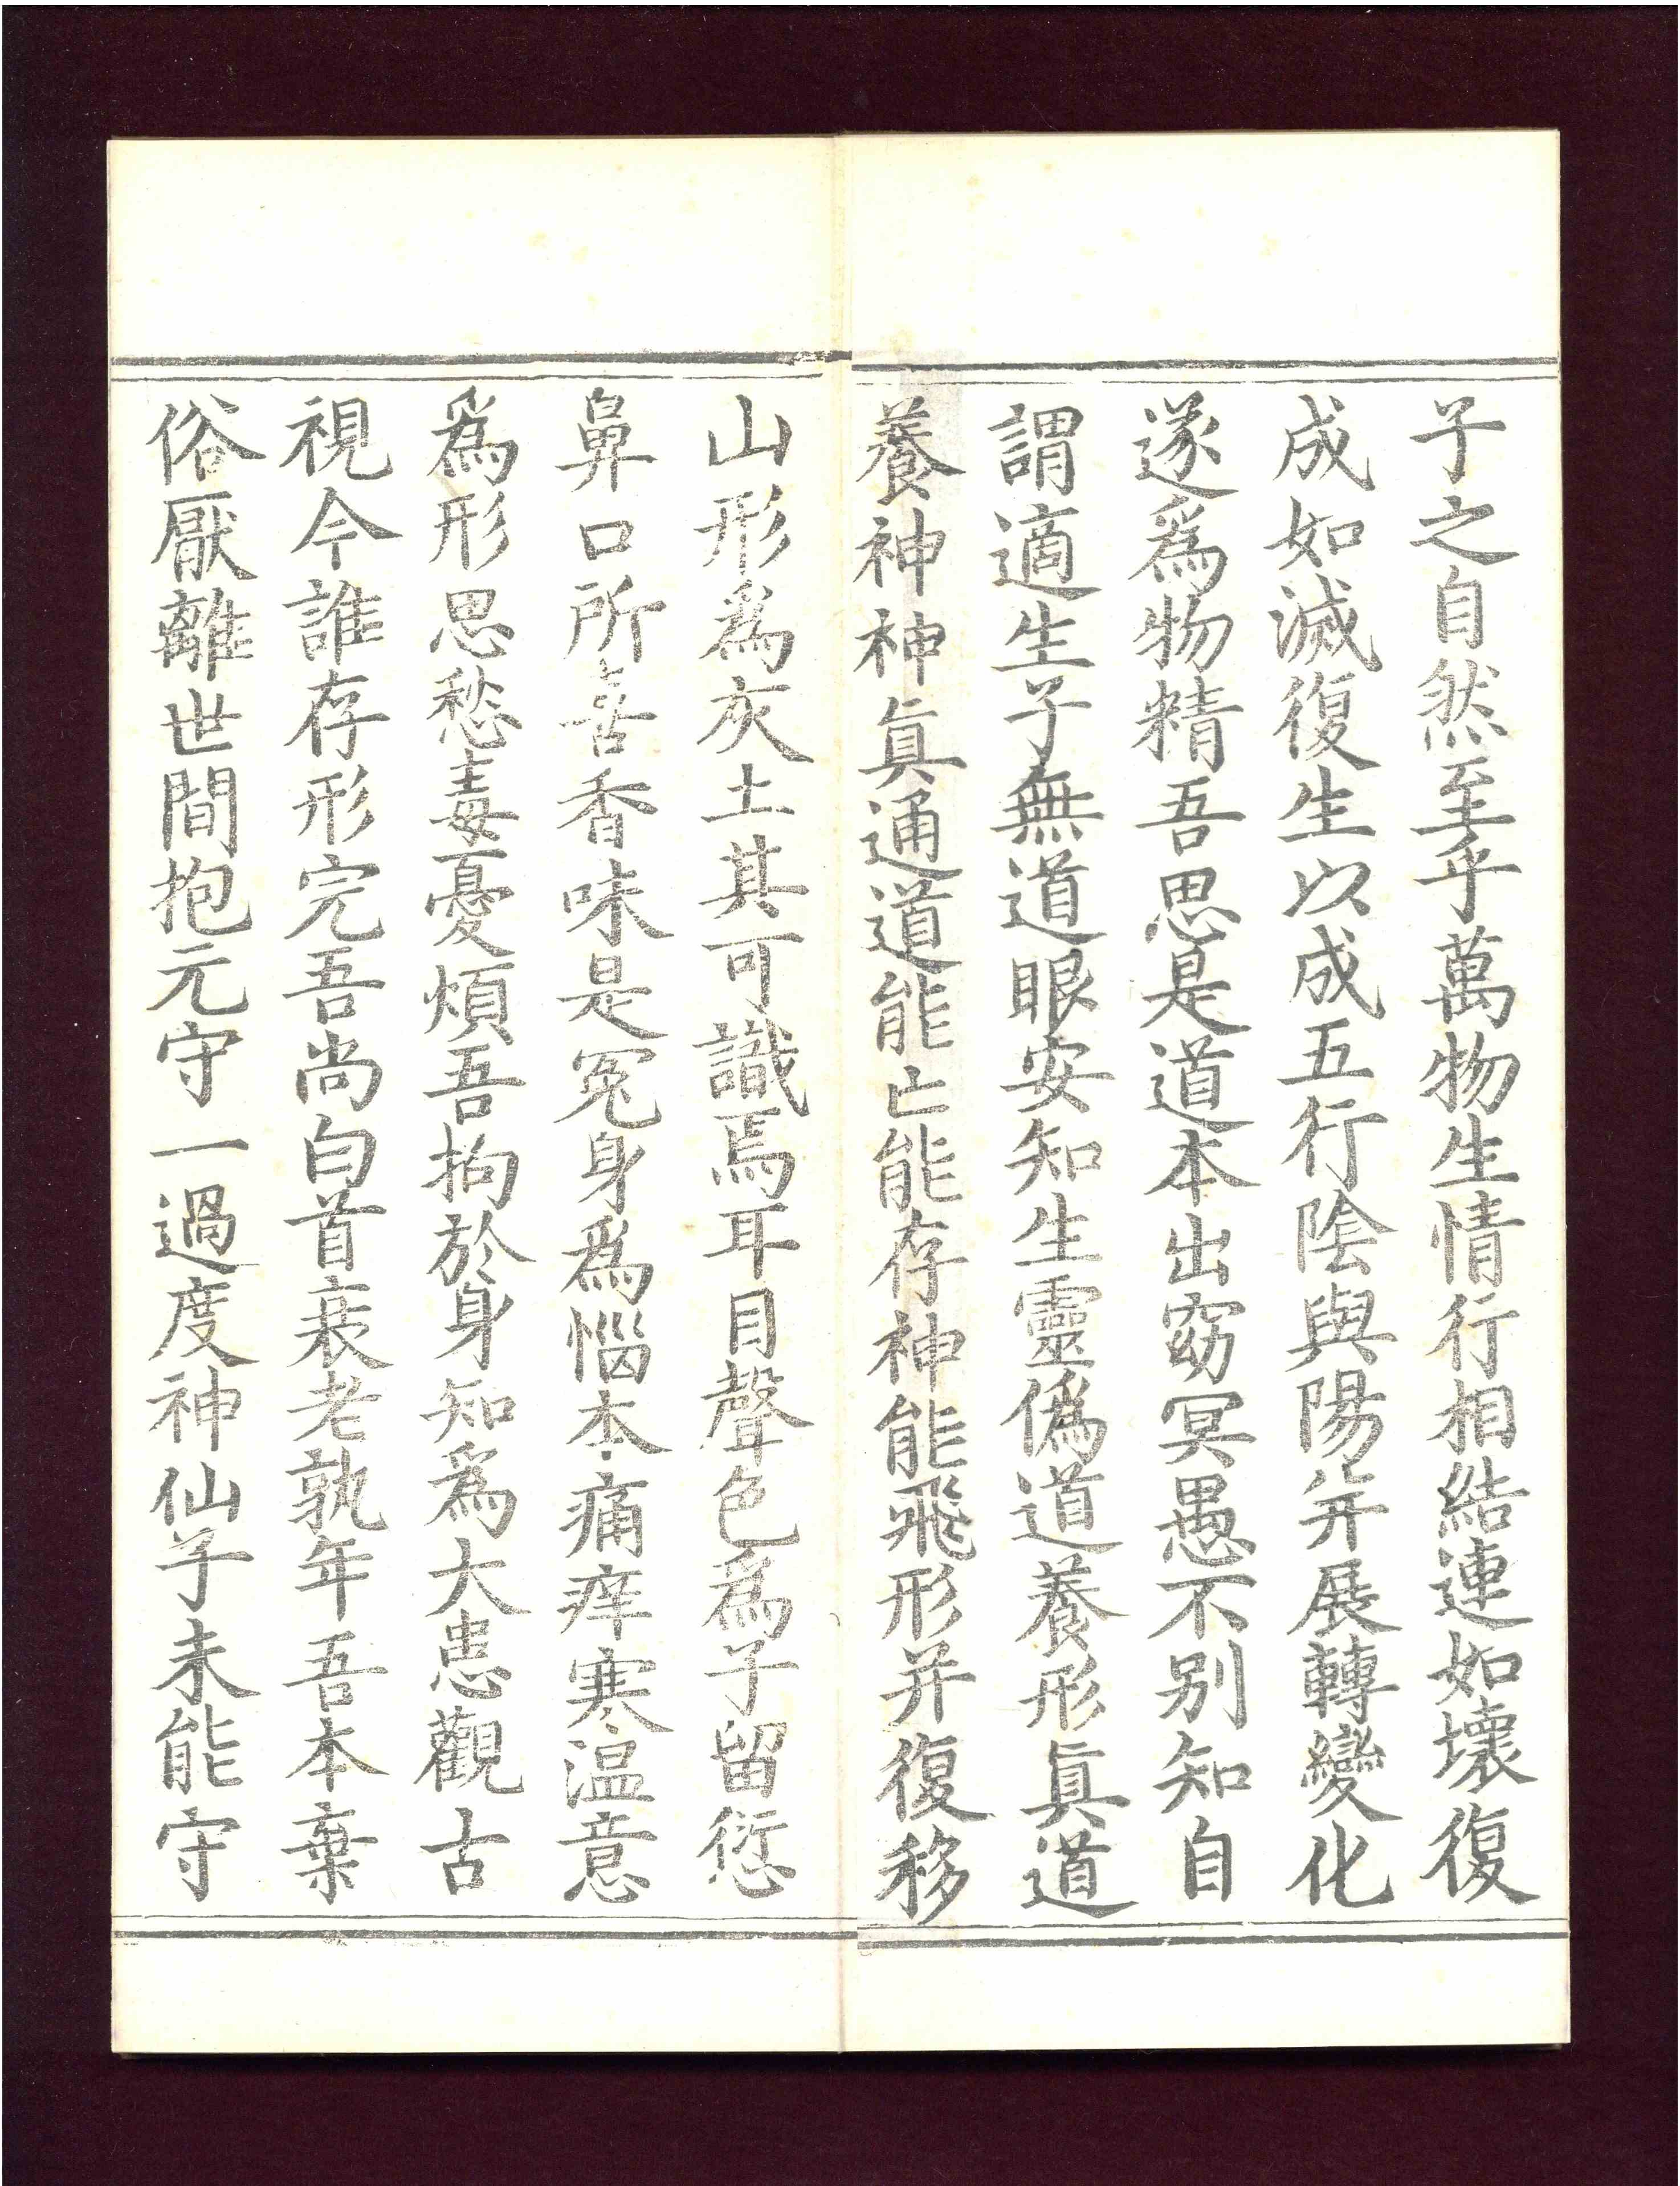 子之自然至乎萬物生情行相結連如壞復
成如滅復生以成五行陰與陽并展轉變化
遂爲物精吾思是道本出窈冥愚不别知自
謂適生子無道眼安知生靈偽道養形真道
養神神真通道能亡能存神能飛形并復移
山形爲灰土其可識焉耳目聲色爲子留愆
鼻口所喜香味是冤身爲惱本痛痒寒温意
爲形思愁毒憂煩吾拘於身知爲大患觀古
視今誰存形完吾尚白首衰老孰年吾本棄
俗厭離世間抱元守一過度神仙子未能守